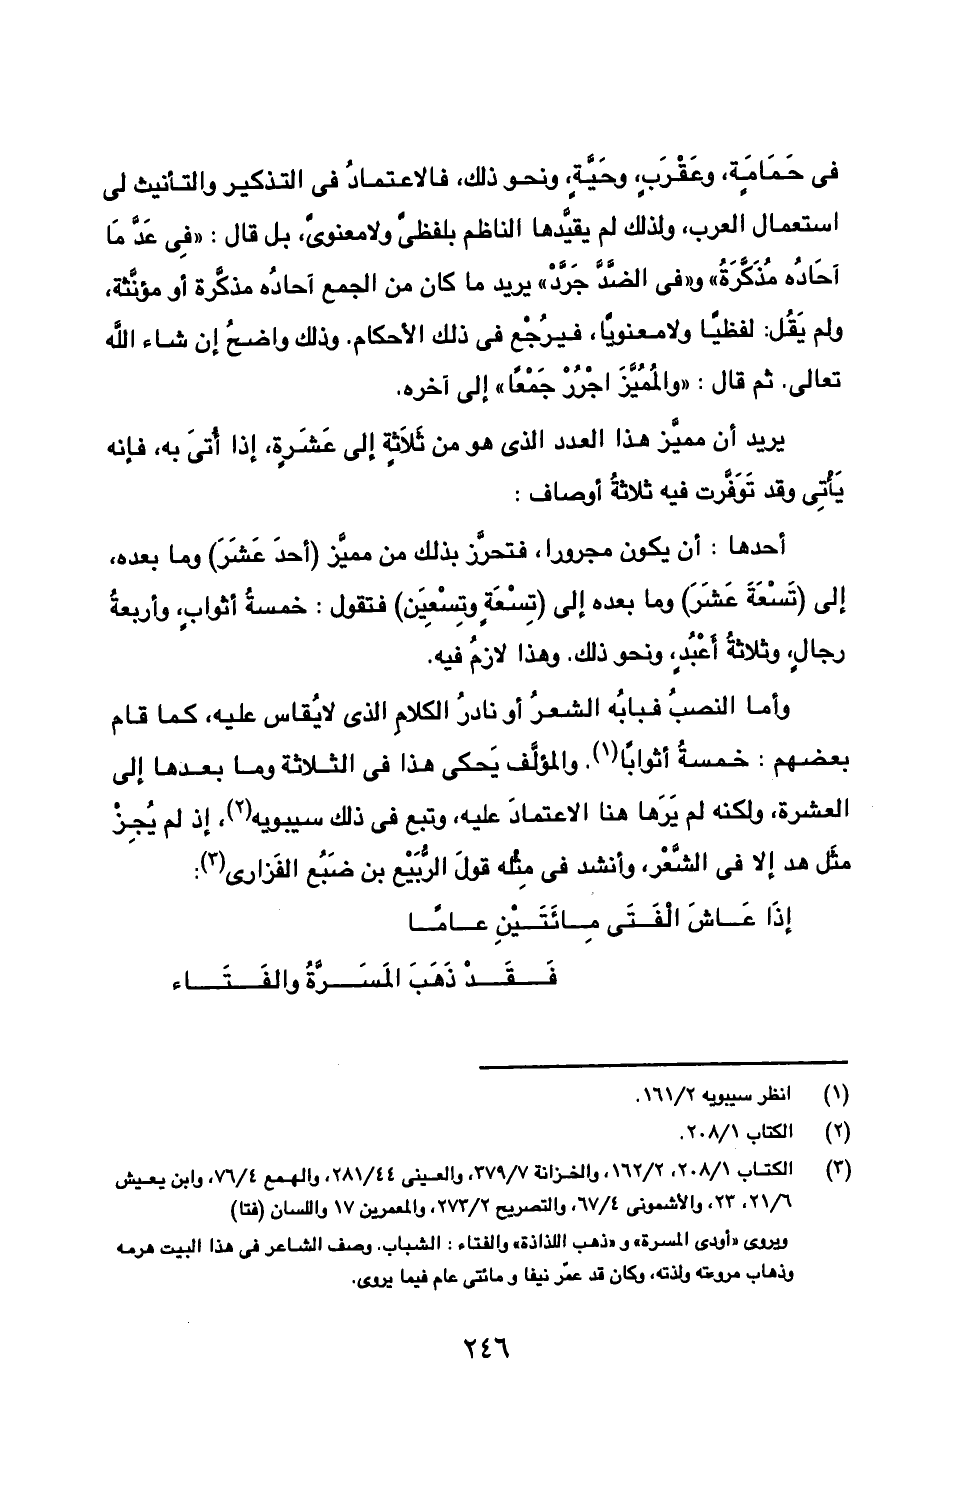 فى حَمَامَةٍ، وعَقْرَبٍ، وحَيَّةٍ، ونحو ذلك، فالاعتمادُ فى التذكير والتأنيث لى
استعمال العرب، ولذلك لم يقيَّدها الناظم بلفظىَّ ولامعنوىَّ، بل قال : «فِى عَدَّ مَا
آحَادُه مُذَكَّرَةُ» و«فى الضَّدَّ جَرَّدْ» يريد ما كان من الجمع آحادُه مذكَّرة أو مؤنَّثة،
ولم يَقُل: لفظيًا ولامعنويًا، فيرُجْع فى ذلك الأحكام. وذلك واضحُ إن شاء اللَّه
تعالى. ثم قال : «والمُمَيَّزَ اجْرُرْ جَمْعًا» إلى آخره.
يريد أن مميَّز هذا العدد الذى هو من ثَلاَثةٍ إلى عَشَرةٍ، إذا أُتىَ به، فإنه
يَأْتِى وقد تَوَفَّرت فيه ثلاثةُ أوصاف :
أحدها : أن يكون مجرورا، فتحرَّز بذلك من مميَّز (أحدَ عَشَرَ) وما بعده،
إلى (تَسْعَةَ عَشَرَ) وما بعده إلى (تِسْعَةٍ وتِسْعِيَن) فتقول : خمسةُ أثوابٍ، وأربعةُ
رجالٍ، وثلاثةُ أَعْبُدٍ، ونحو ذلك. وهذا لازمُ فيه.
وأما النصبُ فبابُه الشعرُ أو نادرُ الكلامِ الذى لايُقاس عليه، كما قام
بعضهم : خمسةُ أثوابًا(١). والمؤلَّف يَحكى هذا فى الثلاثة وما بعدها إلى
العشرة، ولكنه لم يَرَها هنا الاعتمادَ عليه، وتبع فى ذلك سيبويه(٢)، إذ لم يُجِزْ
مثَل هد إلا فى الشَّعْر، وأنشد فى مِثْله قولَ الرُّبَيْع بن ضَبُع الفَزارى(٣):
إذَا عَــاشَ الْفَــتَى مِــائَتَــيْنِ عــامًــا
فَــقَــدْ ذَهَبَ المَسَــرَّةُ والفَــتَــاء
(١) انظر سيبويه ١٦١/٢.
(٢) الكتاب ٢٠٨/١.
(٣) الكتاب ٢٠٨/١، ١٦٢/٢، والخزانة ٣٧٩/٧، والعينى ٢٨١/٤٤، والهمع ٧٦/٤، وابن يعيش
٢١/٦، ٢٣، والأشمونى ٦٧/٤، والتصريح ٢٧٣/٢، والمعمرين ١٧ واللسان (فتا)
ويروى «أودى المسرة» و «ذهب اللذاذة» والفتاء : الشباب. وصف الشاعر فى هذا البيت هرمه
وذهاب مروءته ولذته، وكان قد عمّر نيفا و مائتى عام فيما يروى.
٢٤٦